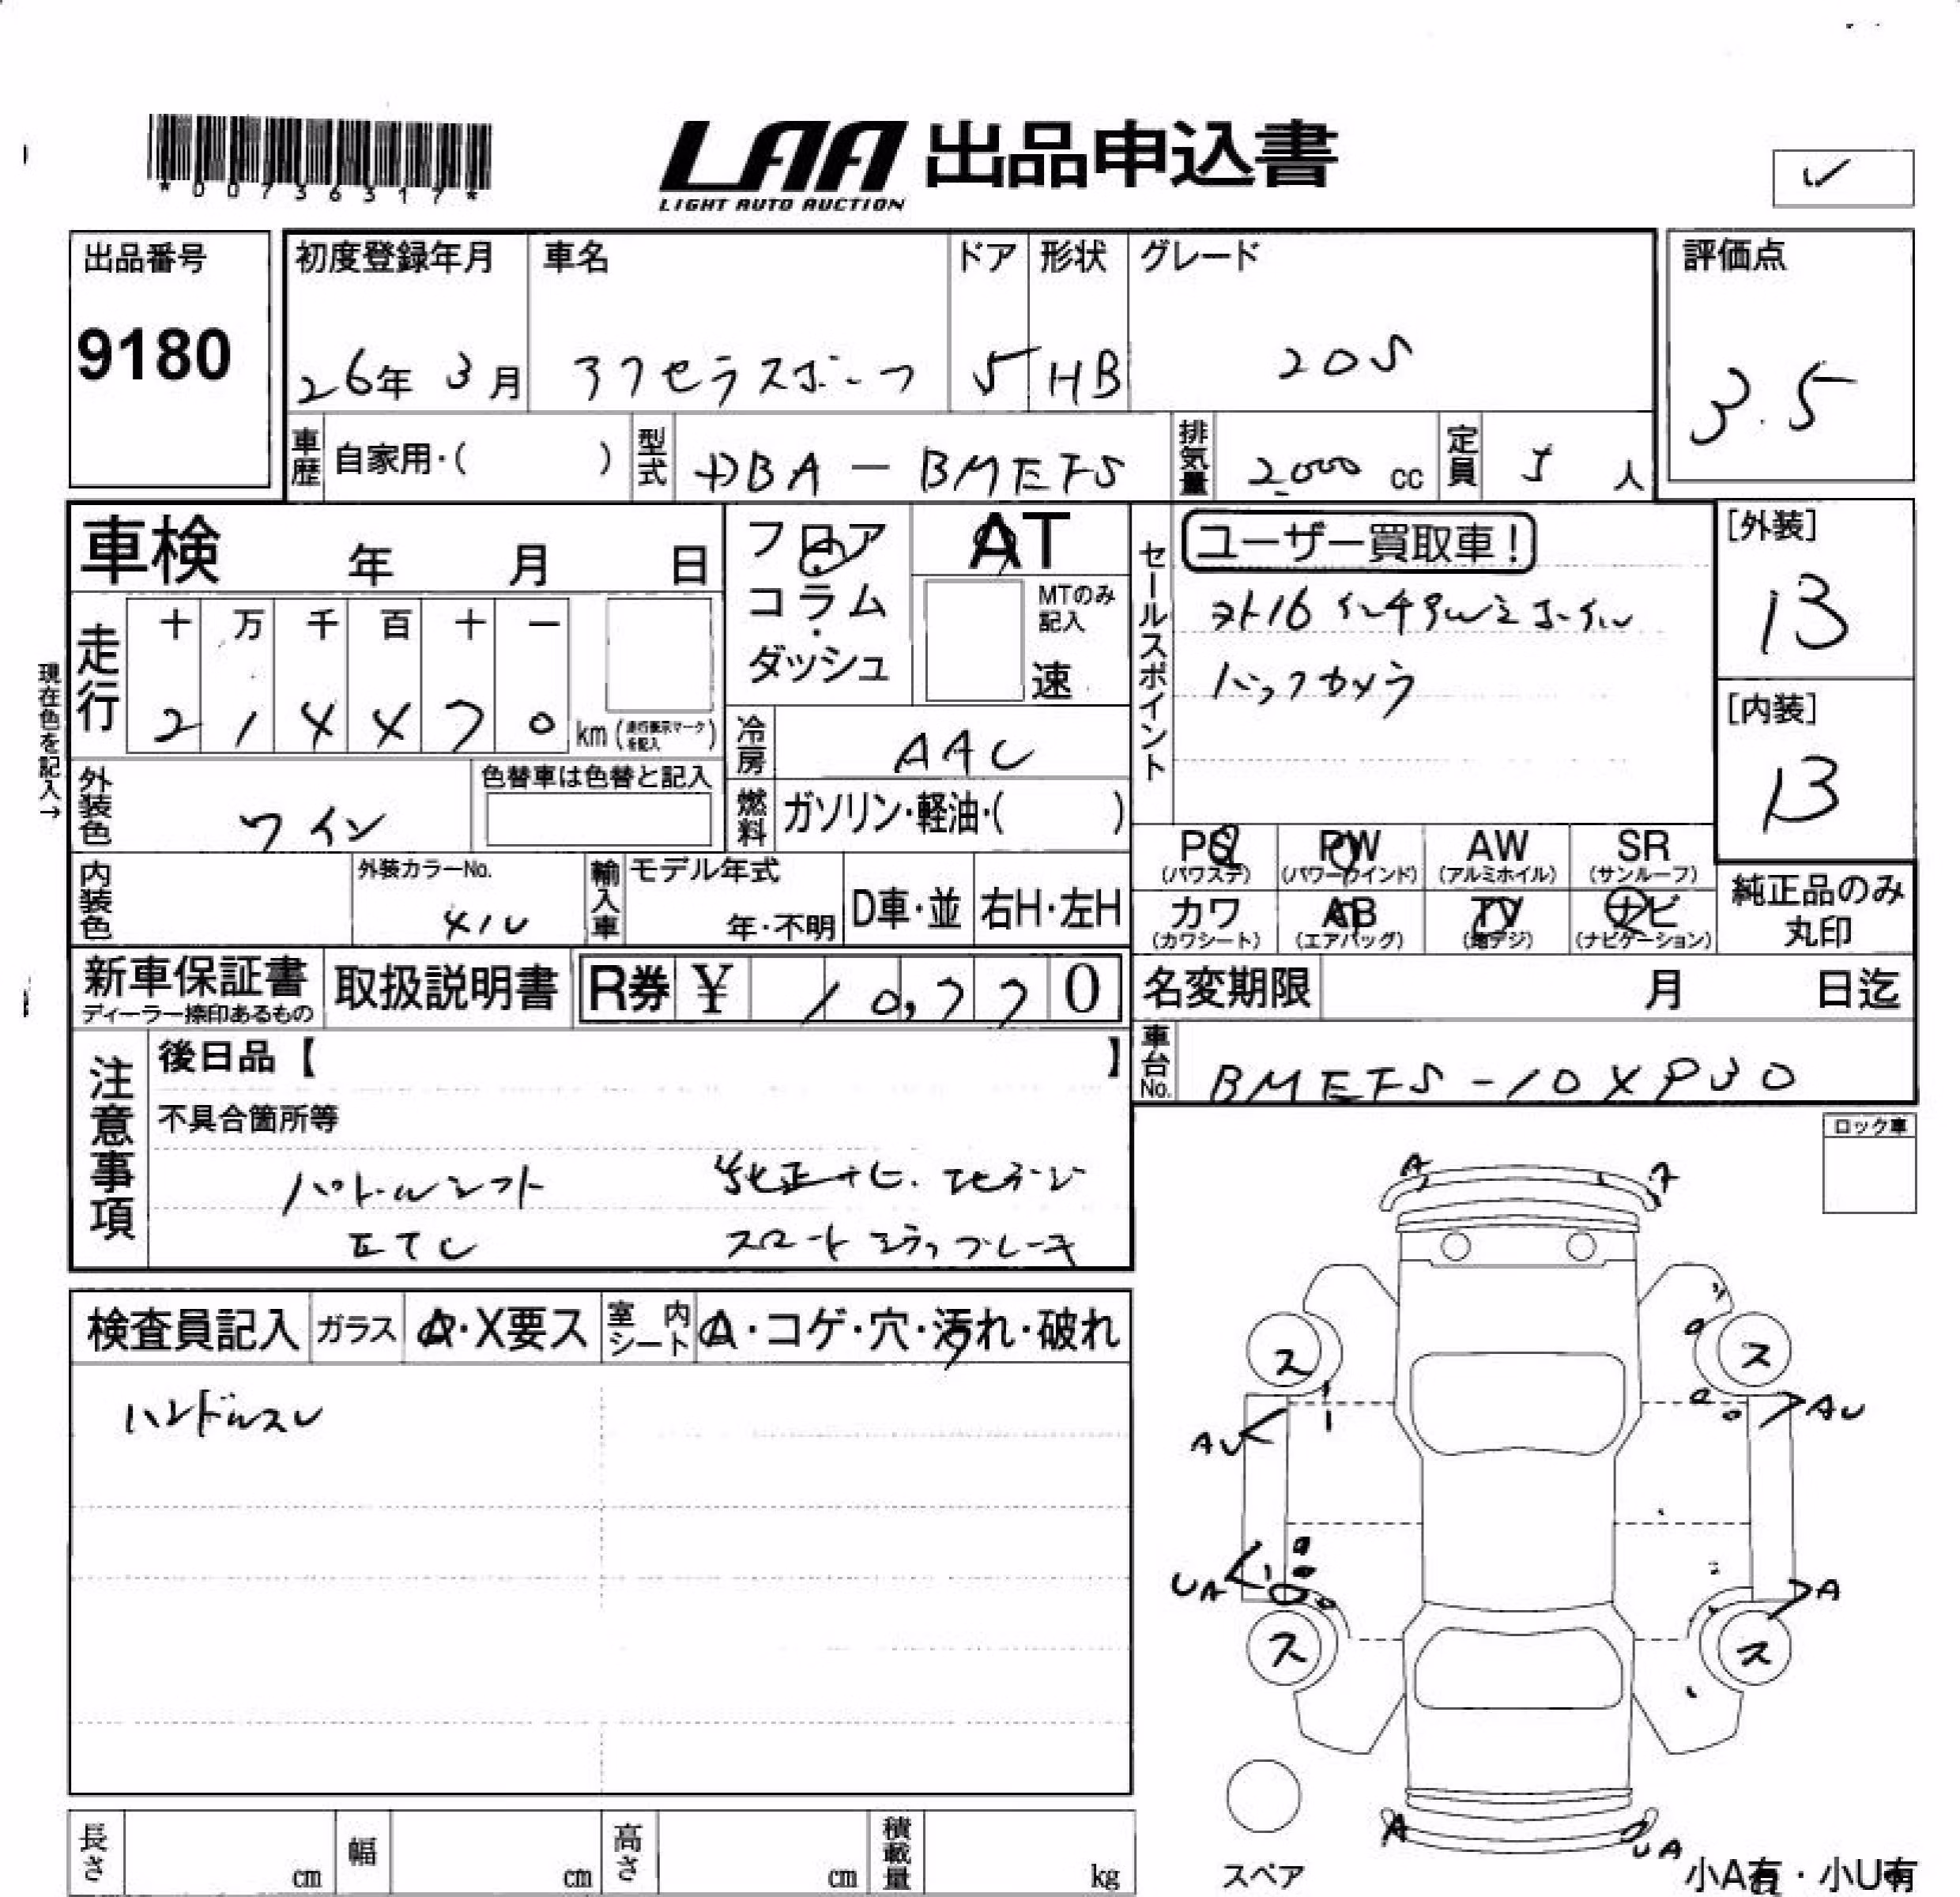 *00736317*
LAA 出品申込書
LIGHT AUTO AUCTION
出品番号
9180
初度登録年月
26年 3月
車名
アクセラスポーツ
ドア
5
形状
HB
グレード
20S
評価点
3.5
車歴 自家用・( )
型式 DBA-BMEFS
排気量 2000 cc
定員 5 人
車検 年 月 日
フロア
コラム
・
ダッシュ
AT
MTのみ
記入
速
セールスポイント
ユーザー買取車!
バックカメラ
[外装]
13
[内装]
13
現在色を記入→
走行
十 万 千 百 十 一
2 1 4 4 7 0 km (走行表示マークを記入)
冷房 AAC
外装色 ワイン
色替車は色替と記入
燃料 ガソリン・軽油・( )
PS (パワステ)
PW (パワーウインド)
AW (アルミホイル)
SR (サンルーフ)
カワ (カワシート)
AB (エアバッグ)
TV (地デジ)
ナビ (ナビゲーション)
純正品のみ
丸印
内装色
外装カラーNo.
41V
輸入車
モデル年式
年・不明
D車・並
右H・左H
新車保証書
ディーラー捺印あるもの
取扱説明書
R券 ¥ 10,770
名変期限 月 日迄
車台No. BMEFS-10X930
注意事項
後日品【 】
不具合箇所等
パドルシフト 純正ナビ.
ETC スマートシティブレーキ
ロック車
検査員記入
ガラス A・X要ス
室内シート A・コゲ・穴・汚れ・破れ
ハンドルスレ
A A
ス ス
AU AU
UA A
ス ス
A UA
スペア
小A有・小U有
長さ cm
幅 cm
高さ cm
積載量 kg